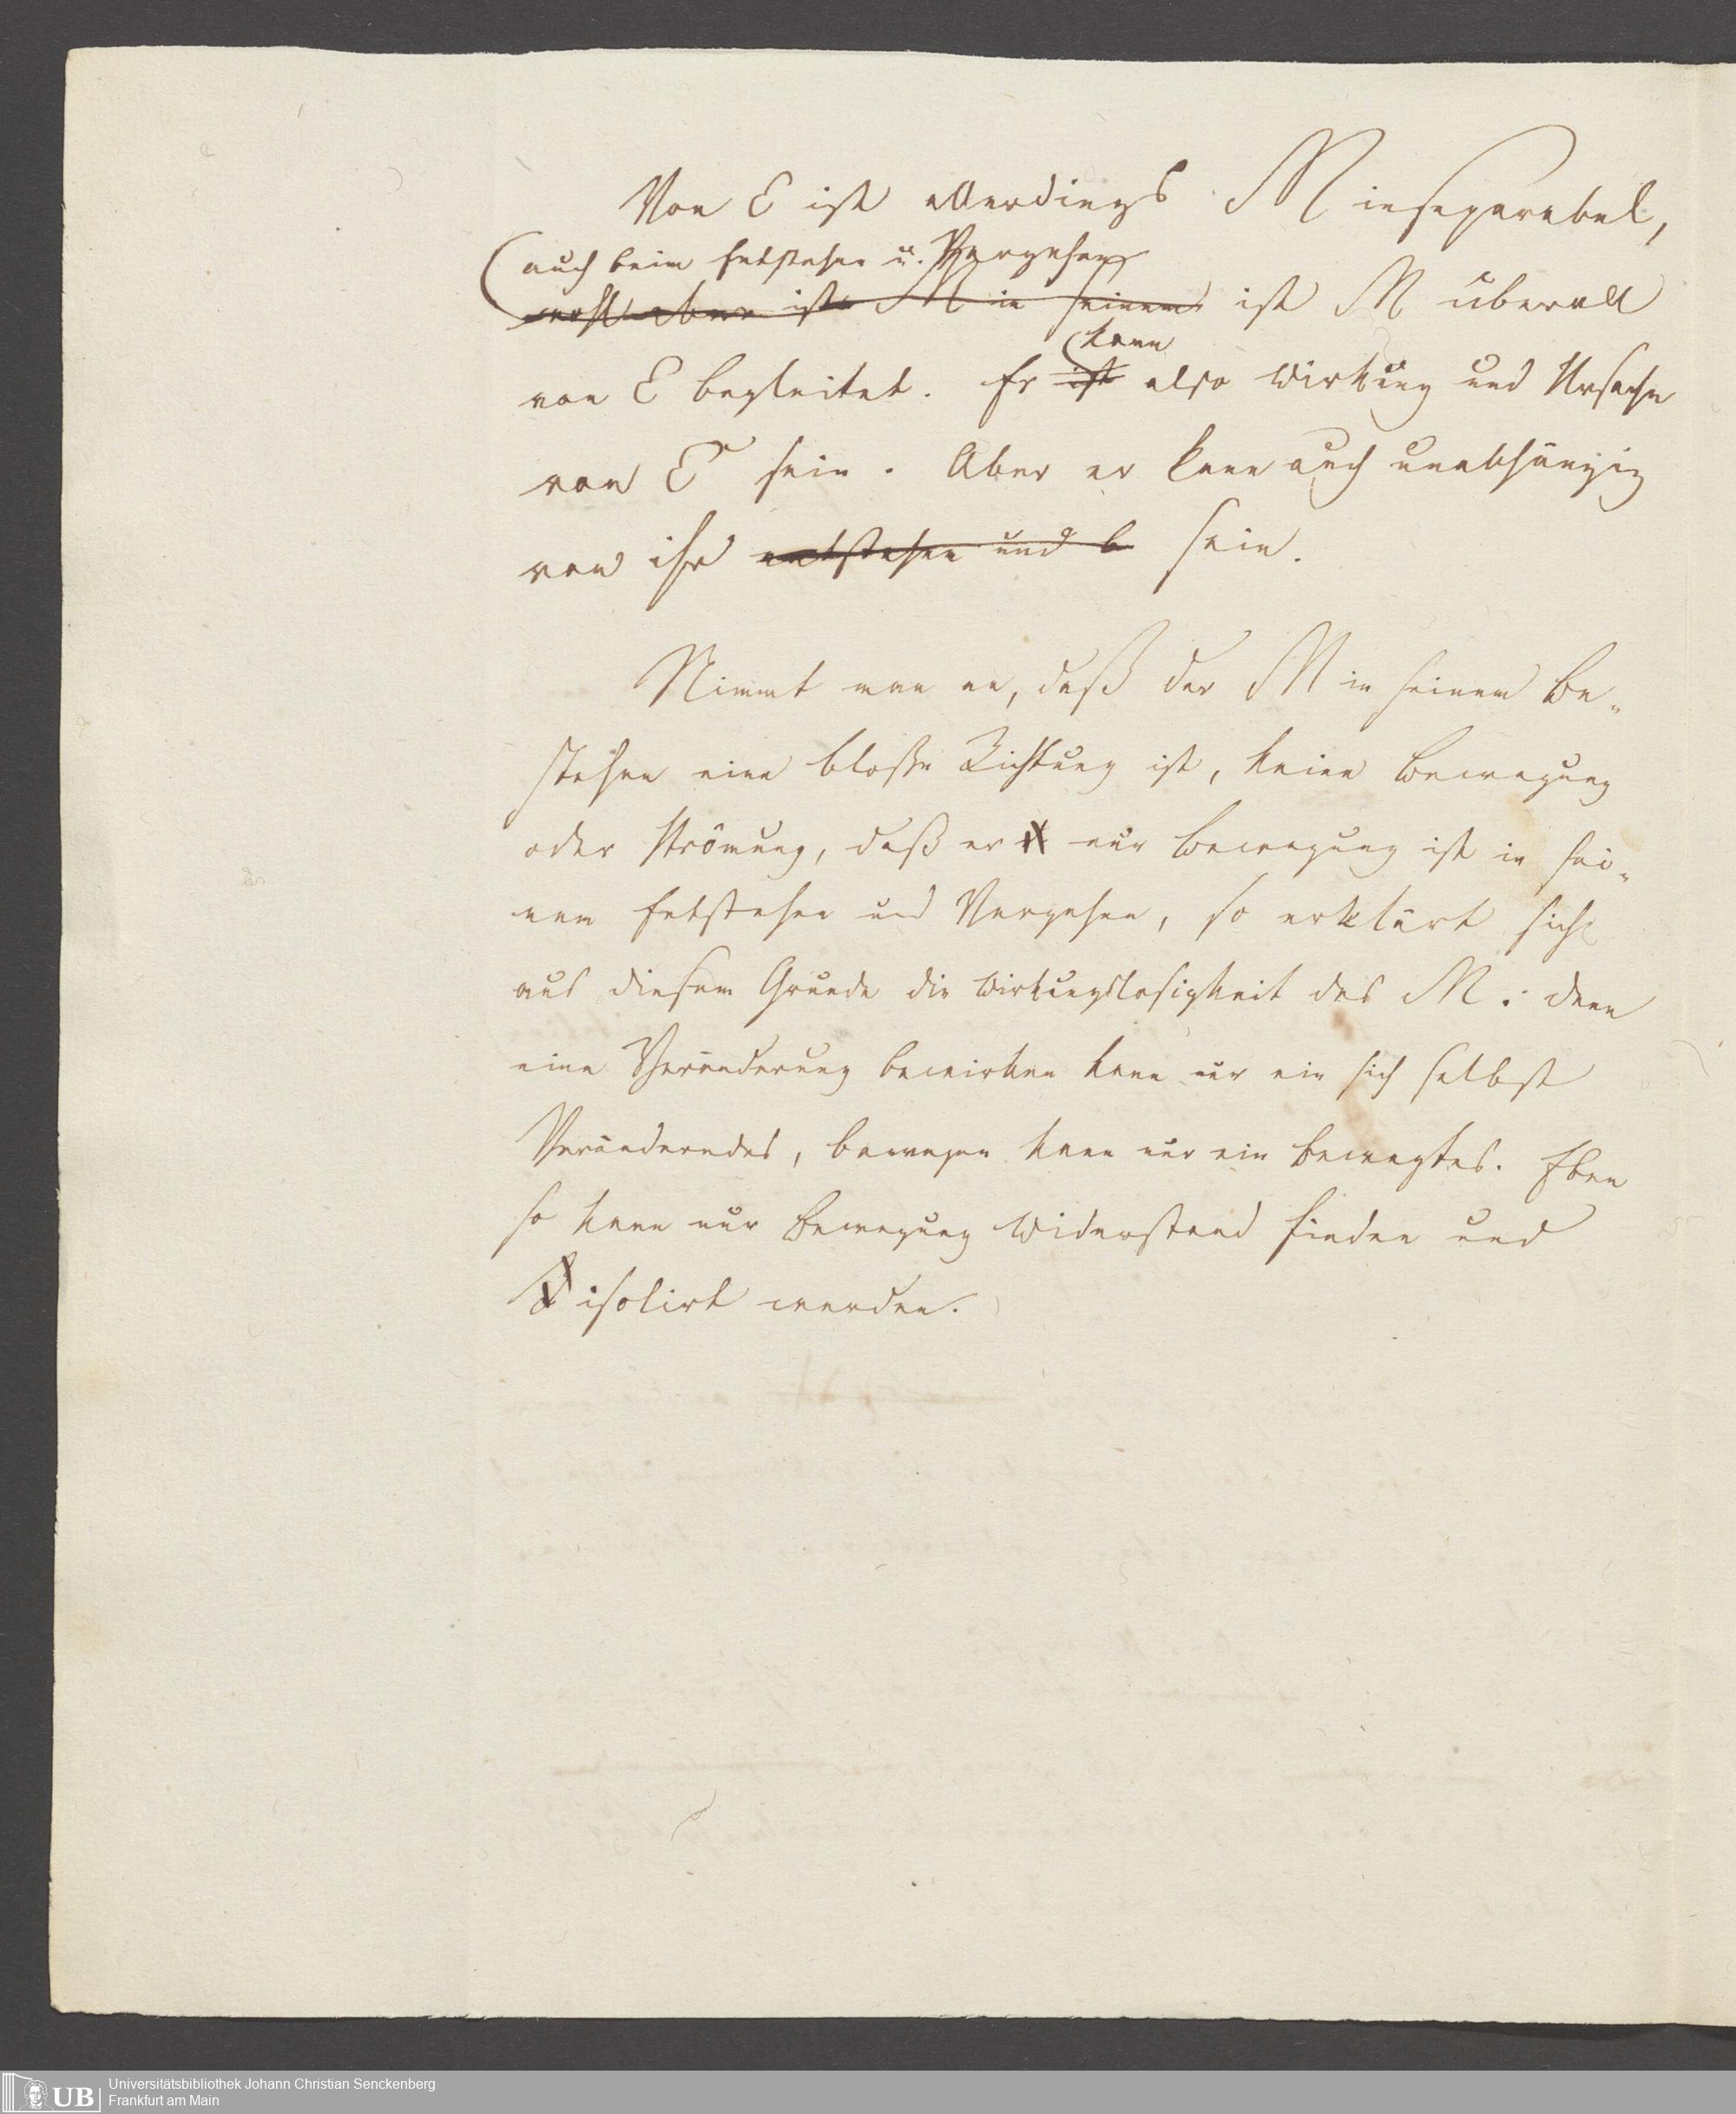 Von E ist allerdings M inseparabel,
auch beim Entstehen u. Vergehen
wohl aber ist M in seinem ist M überall
kann
von E begleitet. Er ist also Wirkung und Ursache
von E sein. Aber er kann auch unabhängig
von ihr entstehen und b sein.
Nimmt man an, daß der M in seinem Be-
stehen eine bloße Richtung ist, keine Bewegung
oder Strömung, daß er nur Bewegung ist in sei-
nem Entstehen und Vergehen, so erklärt sich
aus diesem Grunde die Wirkungslosigkeit des M: denn
eine Veränderung bewirken kann nur ein sich selbst
Veränderndes, bewegen kann nur ein bewegtes. Eben
so kann nur Bewegung Widerstand finden und
isolirt werden.
UB
Universitätsbibliothek Johann Christian Senckenberg
Frankfurt am Main